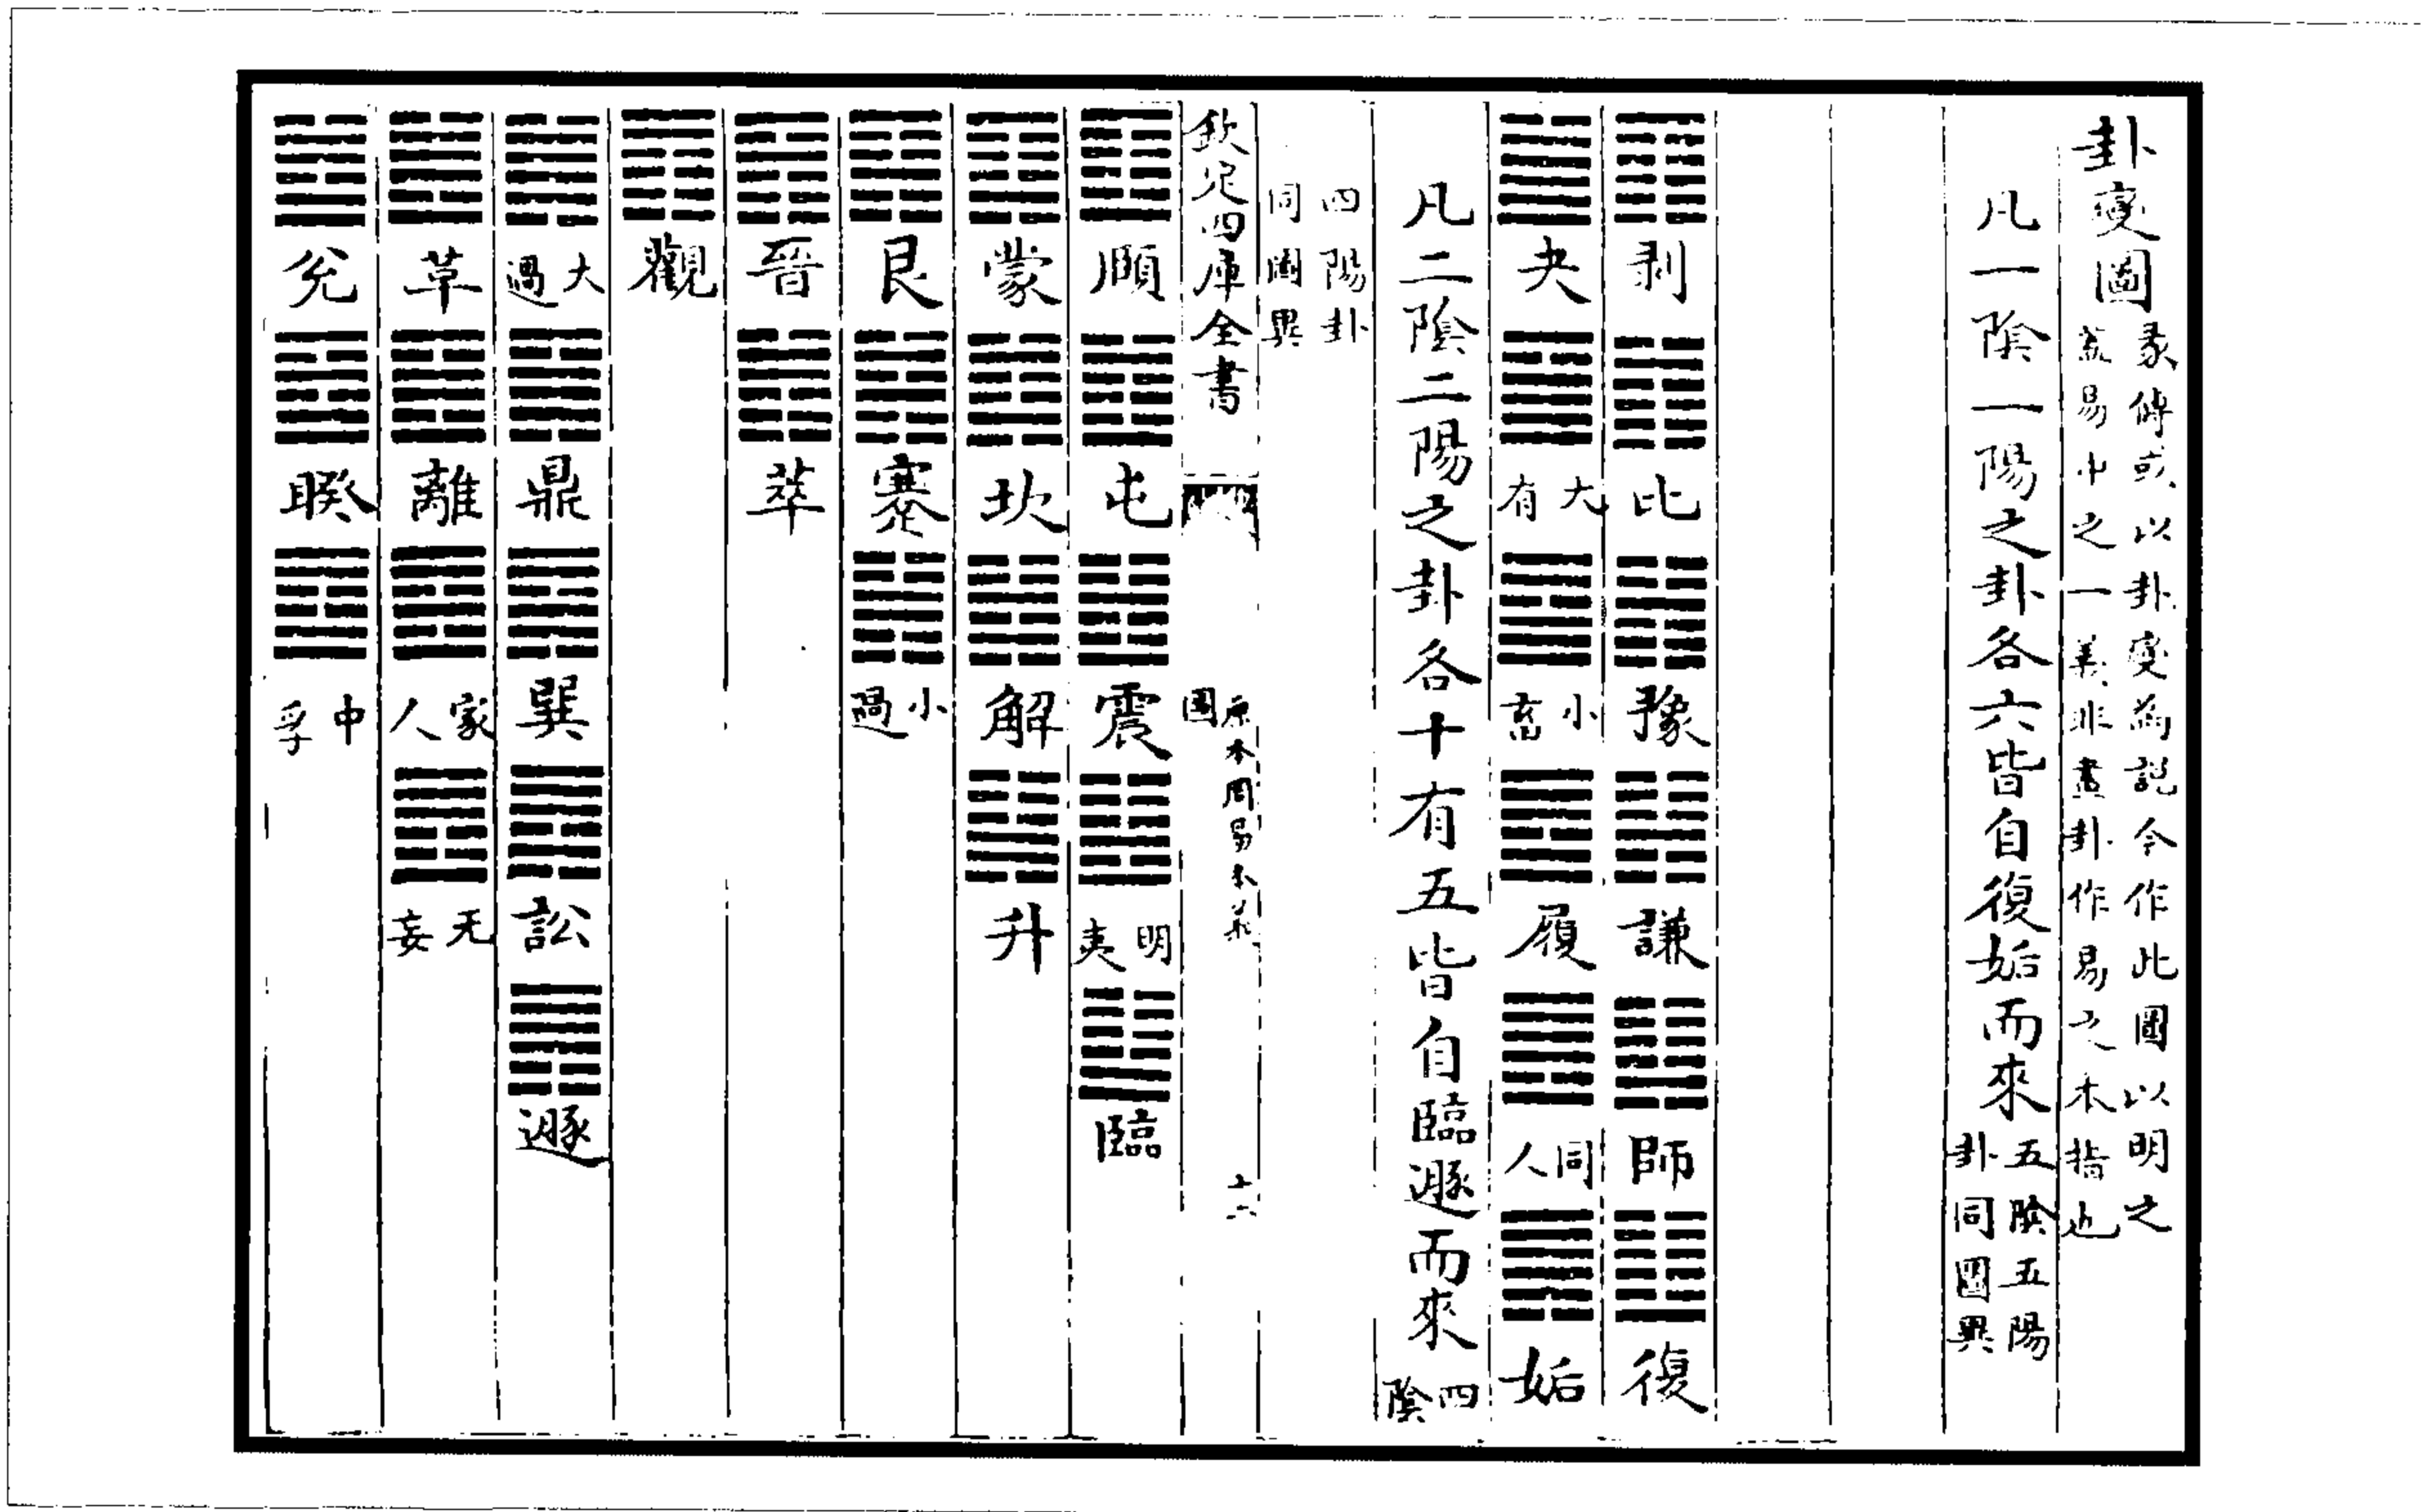 卦變圖彖傳或以卦變為説今作此圖以明之
蓋易中之一義非畫卦作易之本指也
凡一陰一陽之卦各六皆自復姤而來五陰五陽
卦同圖異
剥 比 豫 謙 師 復
夬 大有 小畜 履 同人 姤
凡二陰二陽之卦各十有五皆自臨遯而來四陰
四陽卦
同圖異
欽定四庫全書
原本周易本義
圖
十六
頤 屯 震 明夷 臨
蒙 坎 解 升
艮 蹇 小過
晉 萃
觀
大過 鼎 巽 訟 遯
革 離 家人 无妄
兊 睽 中孚